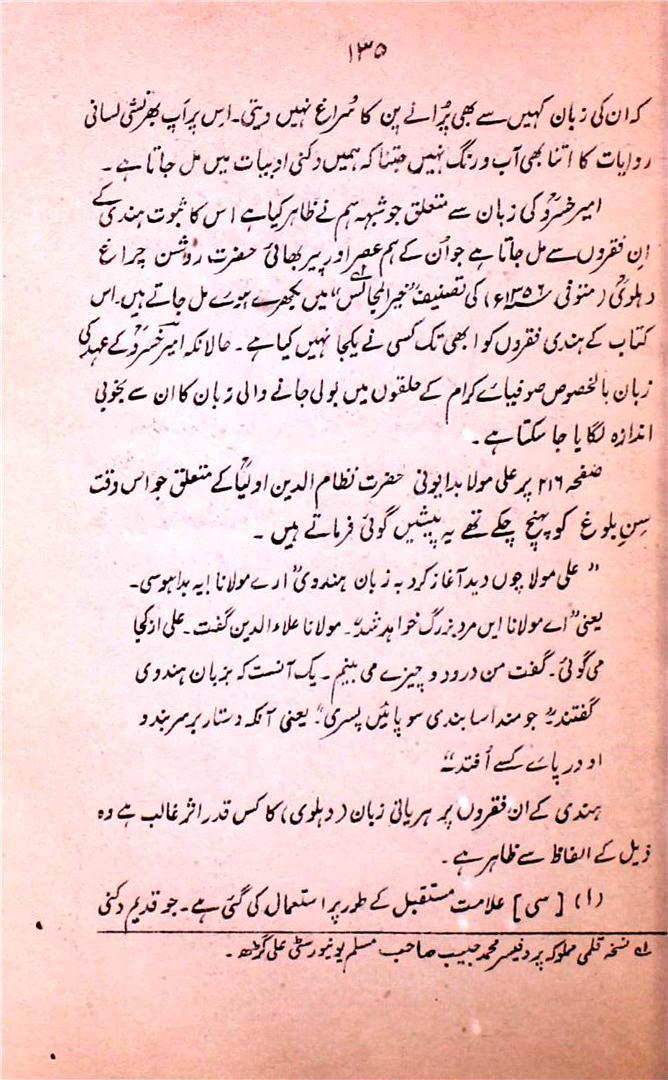 ۱۳۵
کہ ان کی زبان کہیں سے بھی پُرانے پن کا سُراغ نہیں دیتی۔ اس پر آپ بھرنشی لسانی
روایات کا اتنا بھی آب و رنگ نہیں جتنا کہ ہمیں دکنی ادبیات میں مل جاتا ہے۔
امیر خسروؒ کی زبان سے متعلق جو شبہہ ہم نے ظاہر کیا ہے اس کا ثبوت ہندی کے
اِن فقروں سے مل جاتا ہے جو اُن کے ہم عصر اور پیر بھائی حضرت روشن چراغ
دہلویؒ (متوفی ۱۳۵۶ء) کی تصنیف "خیر المجالس" میں بکھرے ہوے مل جاتے ہیں۔ اس
کتاب کے ہندی فقروں کو ابھی تک کسی نے یکجا نہیں کیا ہے۔ حالانکہ امیر خسروؒ کے عہد کی
زبان بالخصوص صوفیاے کرام کے حلقوں میں بولی جانے والی زبان کا ان سے بخوبی
اندازہ لگایا جا سکتا ہے۔
صفحہ ۲۱۶ پر علی مولا بدایونی حضرت نظام الدین اولیاؒ کے متعلق جو اس وقت
سِن بلوغ کو پہنچ چکے تھے یہ پیشیں گوئی فرماتے ہیں۔
"علی مولا چوں دید آغاز کرد بہ زبان ہندوی "ارے مولانا ایہ بڈا ہوسی۔
یعنی "اے مولانا ایں مرد بزرگ خواہد شد"۔ مولانا علاء الدین گفت۔ علی از کجا
می گوئی۔ گفت من درو دو چیزے می بینم۔ یک آنست کہ بزبان ہندوی
گفتند "جو منڈاسا بندی سو پائیں پسری" یعنی آنکہ دستار بر سر بندو
او در پاے کسے اُفتد"
ہندی کے ان فقروں پر ہریانی زبان (دہلوی) کا کس قدر اثر غالب ہے وہ
ذیل کے الفاظ سے ظاہر ہے۔
(۱) [سی] علامت مستقبل کے طور پر استعمال کی گئی ہے۔ جو قدیم دکنی
۱ نسخہ قلمی مملوکہ پروفیسر محمد حبیب صاحب مسلم یونیورسٹی علی گڑھ۔